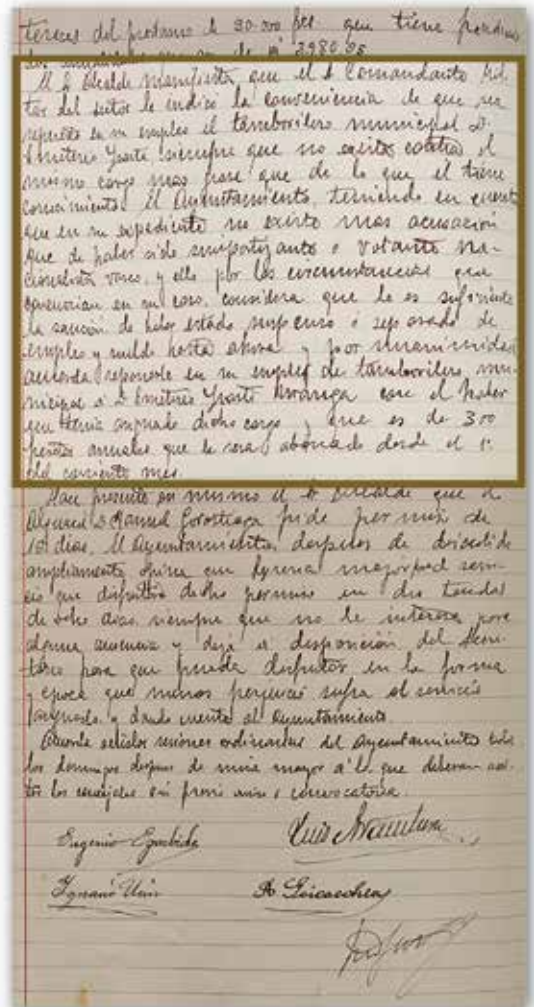 tereses del préstamo de 30.000 pts. que tiene pendien
de 3980.05
El Sr Alcalde manifiesta, que el Sr Comandante Mili
tar del sector le indicó la conveniencia de que sea
repuesto en su empleo el tamborilero municipal D.
Emeterio Yrarte siempre que no exista contra el
mismo cargo mas que de lo que el tiene
conocimiento. El Ayuntamiento, teniendo en cuenta
que en su expediente no existe mas acusación
que de haber sido simpatizante o votante na-
cionalista vasco, y ello por las circunstancias que
concurrian en su caso, considera que le es suficiente
la sanción de haber estado suspenso o separado de
empleo y sueldo hasta ahora y por unanimidad
acuerda reponerle en su empleo de tamborilero mu-
nicipal a D. Emeterio Yrarte Aranga con el haber
que tenia asignado dicho cargo y que es de 300
pesetas anuales que le sera abonado desde el 1º
del corriente mes.
Hace presente asi mismo el Sr Alcalde que el
Alguacil D Manuel Gorostiaga pide permiso de
15 dias. El Ayuntamiento, despues de discutido
ampliamente opina que
cio que disfrutara dicho permiso en dos tandas
de ocho dias, siempre que no le interese para
alguna ausencia y deja a disposición del Secre-
tario para que pueda disfrutar en la forma
y epoca que menos perjuicio sufra el servicio
y dando cuenta al Ayuntamiento.
Acorde señalar sesiones ordinarias del Ayuntamiento todos
los domingos despues de misa mayor a la que deberan asis-
tir los concejales sin previo aviso o convocatoria.
Eugenio Eguibide
Luis Aramburu
Ignacio Unin
R Goicoechea